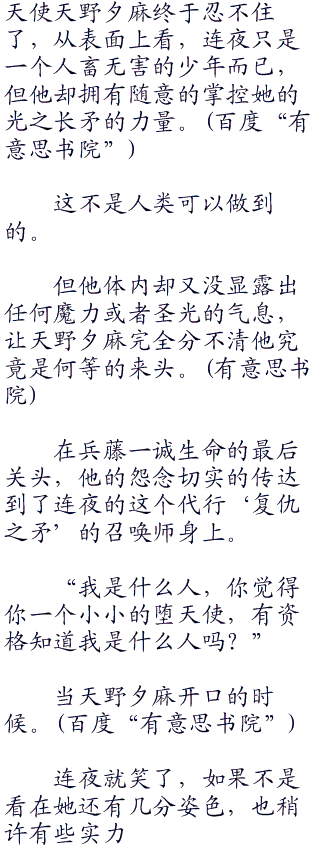 天使天野夕麻终于忍不住
了，从表面上看，连夜只是
一个人畜无害的少年而已，
但他却拥有随意的掌控她的
光之长矛的力量。(百度“有
意思书院”)
这不是人类可以做到
的。
但他体内却又没显露出
任何魔力或者圣光的气息，
让天野夕麻完全分不清他究
竟是何等的来头。(有意思书
院)
在兵藤一诚生命的最后
关头，他的怨念切实的传达
到了连夜的这个代行‘复仇
之矛’的召唤师身上。
“我是什么人，你觉得
你一个小小的堕天使，有资
格知道我是什么人吗？”
当天野夕麻开口的时
候。(百度“有意思书院”)
连夜就笑了，如果不是
看在她还有几分姿色，也稍
许有些实力